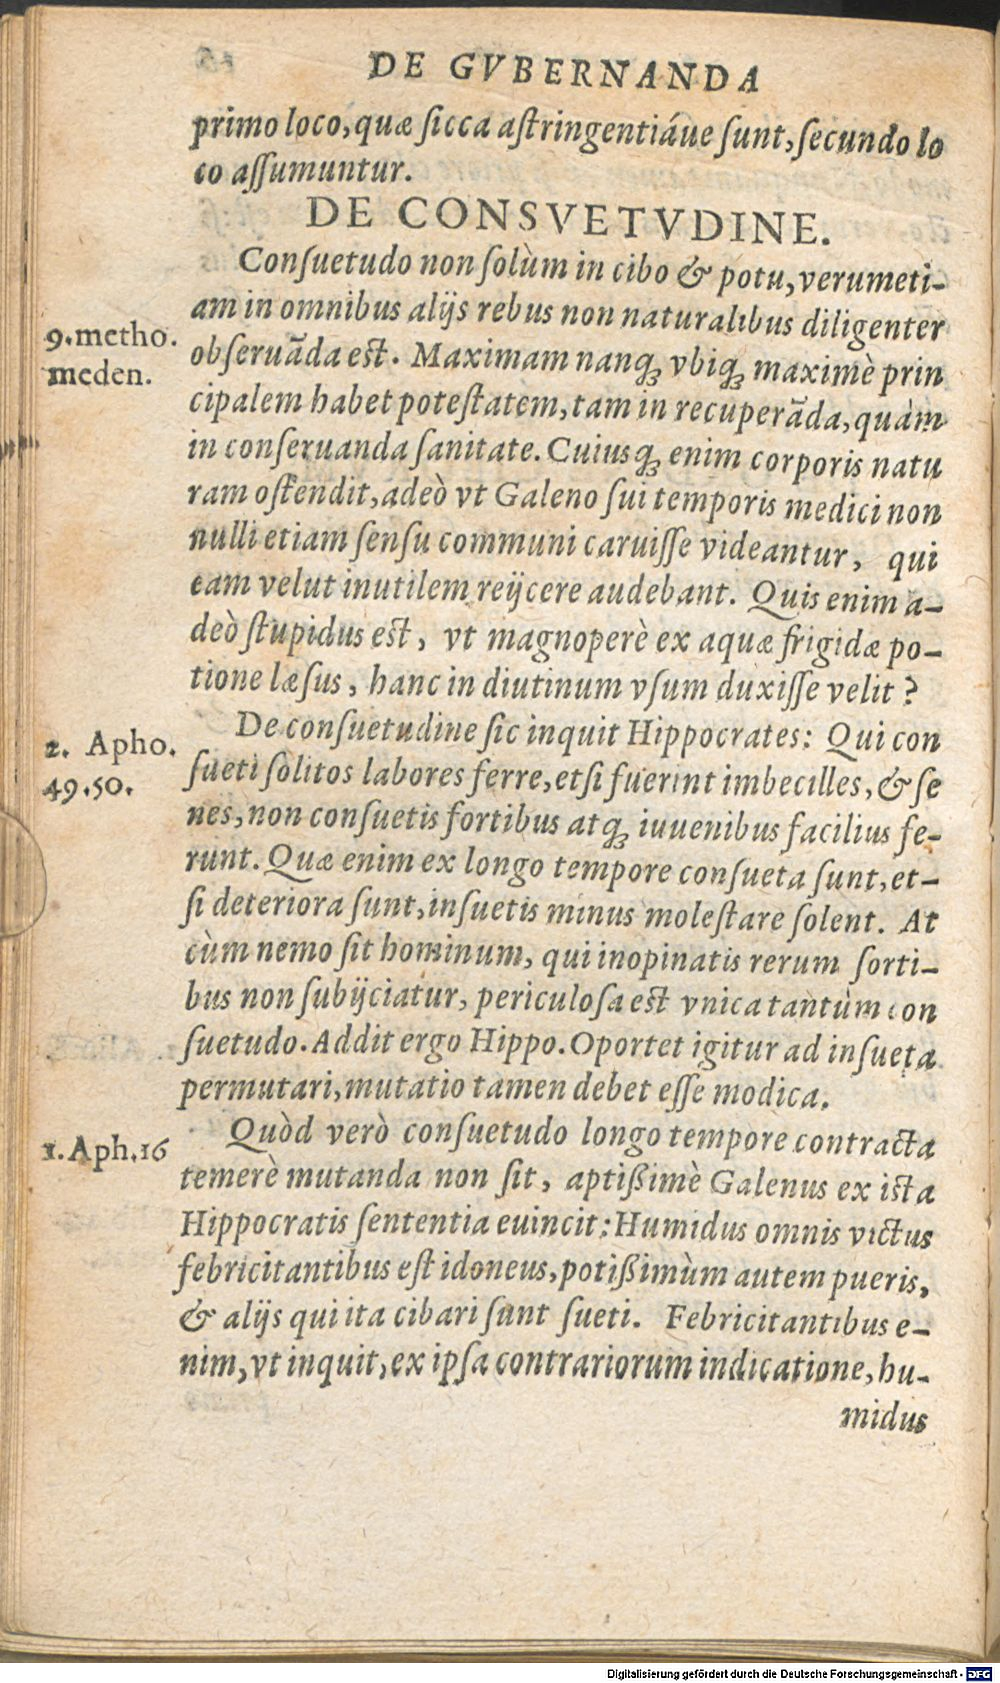 DE GVBERNANDA
primo loco, quæ ſicca aſtringentiáue ſunt, ſecundo lo
co aſſumuntur.
DE CONSVETVDINE.
Conſuetudo non ſolùm in cibo & potu, verumeti-
am in omnibus alijs rebus non naturalibus diligenter
9. metho.
meden.
obſeruãda eſt. Maximam nanq; vbiq; maximè prin
cipalem habet poteſtatem, tam in recuperãda, quàm
in conſeruanda ſanitate. Cuiusq; enim corporis natu
ram oſtendit, adeò vt Galeno ſui temporis medici non
nulli etiam ſenſu communi caruiſſe videantur, qui
eam velut inutilem reijcere audebant. Quis enim a-
deò ſtupidus eſt, vt magnoperè ex aquæ frigidæ po-
tione læſus, hanc in diutinum vſum duxiſſe velit?
De conſuetudine ſic inquit Hippocrates: Qui con
2. Apho.
49.50.
ſueti ſolitos labores ferre, etſi fuerint imbecilles, & ſe
nes, non conſuetis fortibus atq; iuuenibus facilius fe-
runt. Quæ enim ex longo tempore conſueta ſunt, et-
ſi deteriora ſunt, inſuetis minus moleſtare ſolent. At
cùm nemo ſit hominum, qui inopinatis rerum ſorti-
bus non ſubijciatur, periculoſa eſt vnica tantùm con
ſuetudo. Addit ergo Hippo. Oportet igitur ad inſueta
permutari, mutatio tamen debet eſſe modica.
Quòd verò conſuetudo longo tempore contracta
1. Aph. 16
temerè mutanda non ſit, aptißimè Galenus ex iſta
Hippocratis ſententia euincit: Humidus omnis victus
febricitantibus eſt idoneus, potißimùm autem pueris,
& alijs qui ita cibari ſunt ſueti. Febricitantibus e-
nim, vt inquit, ex ipſa contrariorum indicatione, hu-
midus
Digitalisierung gefördert durch die Deutsche Forschungsgemeinschaft - DFG